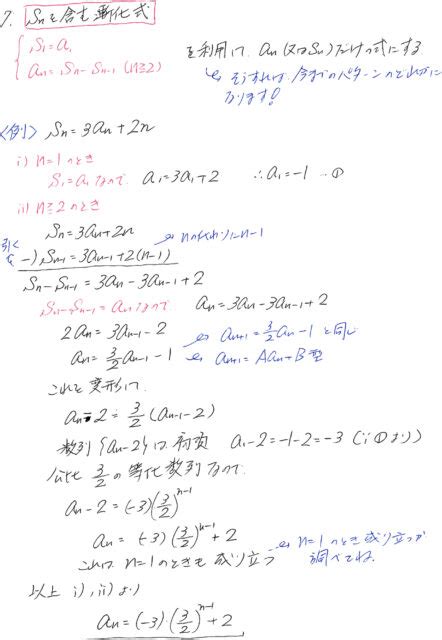 7. Snを含む漸化式
S1=a1
an=Sn-Sn-1 (n≧2)
を利用して、an(又はSn)だけの式にする
そうすれば、今までのパターンのどれかに
なります!
<例> Sn=3an+2n
i) n=1のとき
S1=a1なので a1=3a1+2 ∴a1=-1 …①
ii) n≧2のとき
Sn=3an+2n
nの代わりにn-1
引く
-) Sn-1=3an-1+2(n-1)
Sn-Sn-1=3an-3an-1+2
Sn-Sn-1=anなので an=3an-3an-1+2
2an=3an-1-2
an+1=3/2an-1 と同じ
an=3/2an-1-1
an+1=Aan+B型
これを変形して
an-2=3/2(an-1-2)
数列{an-2}は初項 a1-2=-1-2=-3 (∵①より)
公比 3/2 の等比数列なので
an-2=(-3)(3/2)^n-1
an=(-3)(3/2)^n-1+2
これは n=1のときも成り立つ
n=1のとき成り立つか
調べてね。
以上 i), ii)より
an=(-3)・(3/2)^n-1+2